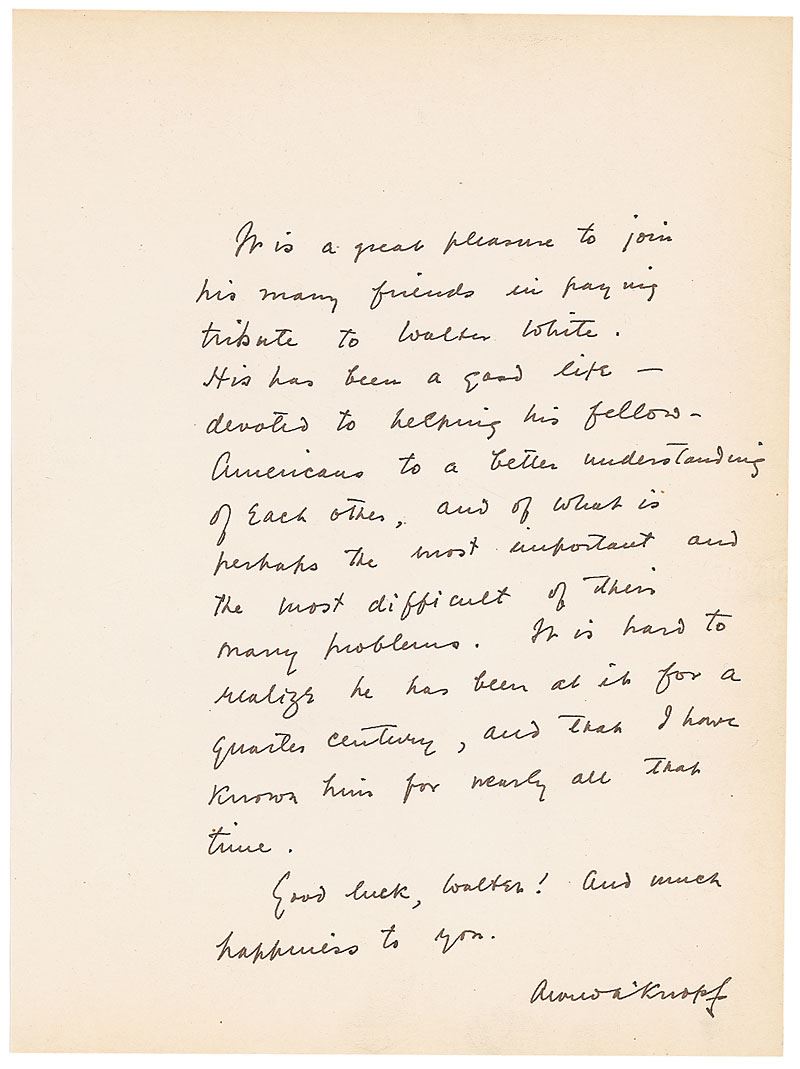 It is a great pleasure to join
his many friends in paying
tribute to Walter White.
His has been a good life —
devoted to helping his fellow-
Americans to a better understanding
of each other, and of what is
perhaps the most important and
the most difficult of their
many problems. It is hard to
realize he has been at it for a
quarter century, and that I have
known him for nearly all that
time.
Good luck, Walter! And much
happiness to you.
Alfred A. Knopf